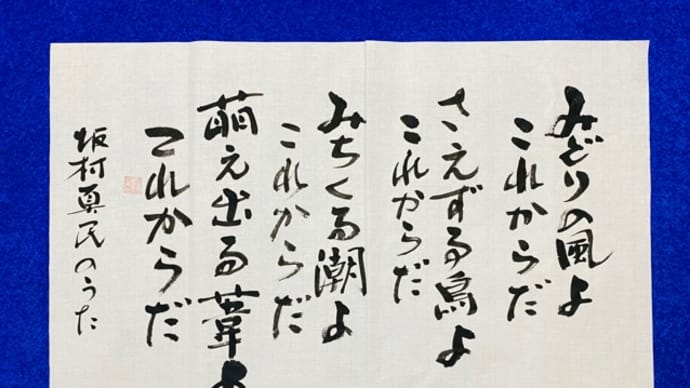 みどりの風よ
これからだ
さえずる鳥よ
これからだ
みちくる潮よ
これからだ
萌え出る葦よ
これからだ
坂村真民のうた